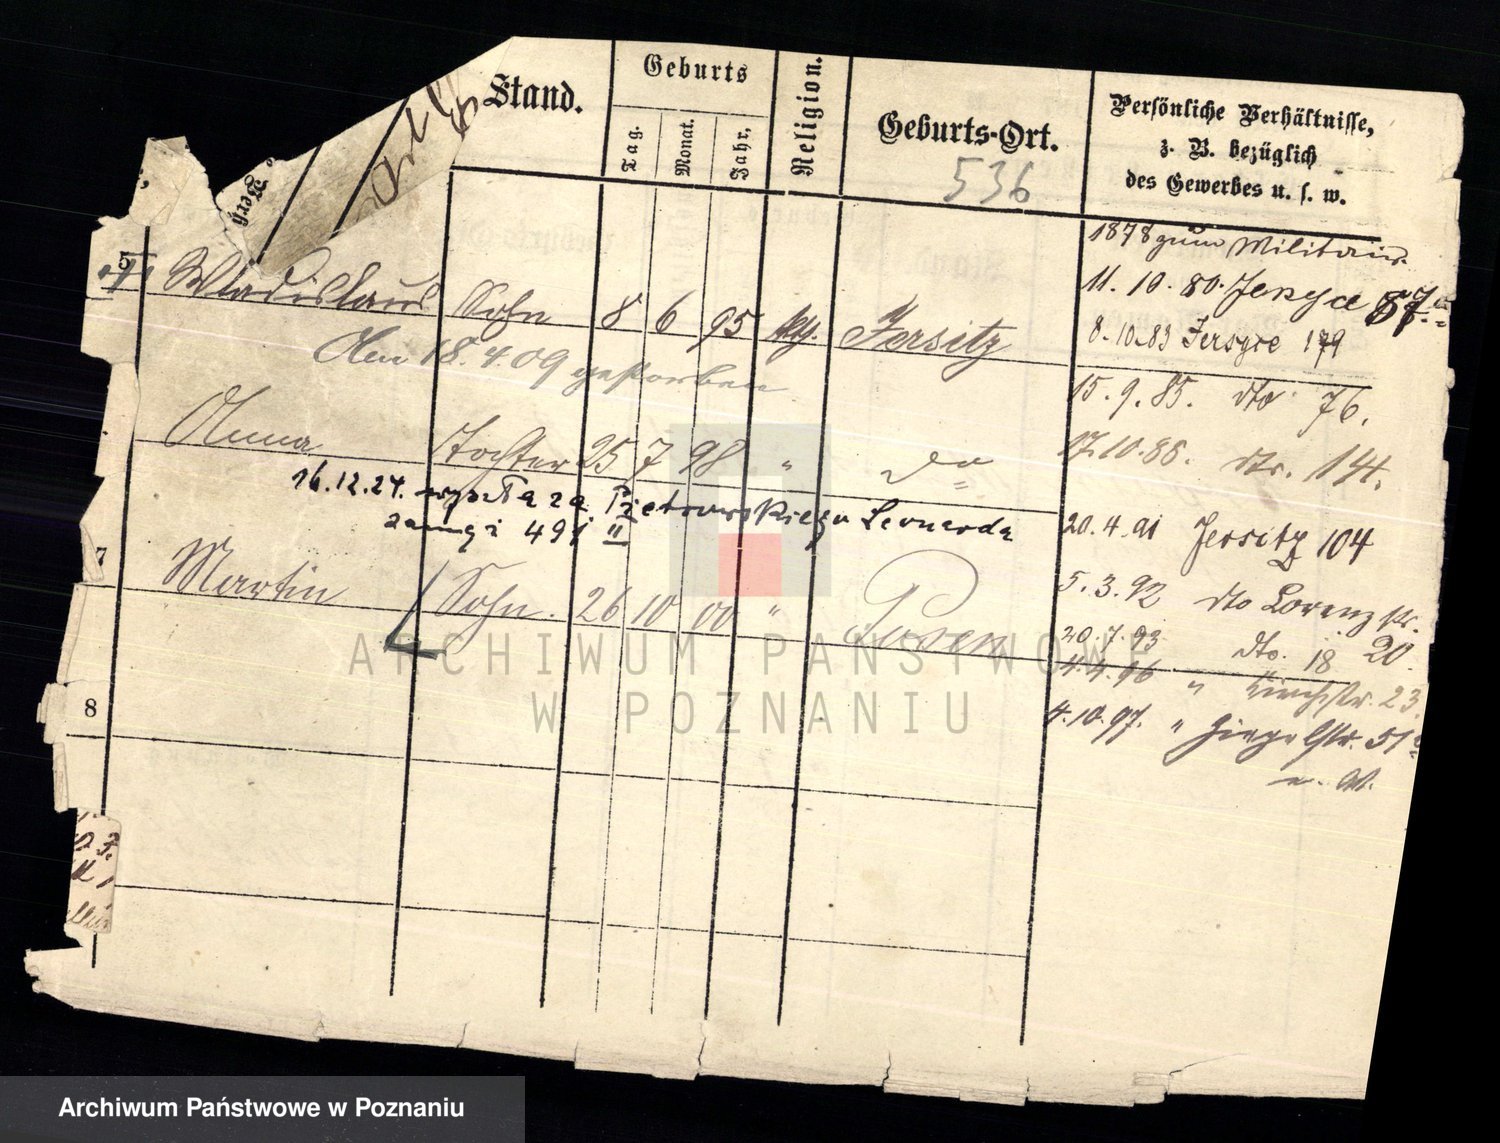 Stand.
Geburts
Tag.
Monat.
Jahr,
Religion.
Geburts-Ort.
536
Persönliche Verhältnisse,
z. B. bezüglich
des Gewerbes u. s. w.
1878 zum Militair.
11. 10. 80. Jersyce
8. 10. 83 Jersyce 179
15. 9. 85. dto 76.
17. 10. 86. dto. 144.
20. 4. 91 Jersitz 104
5. 3. 92 dto Lorenzstr. 20.
20. 7. 93 dto. 18
4. 4. 96 " Kirchstr. 23.
4. 10. 97. "
Wladislaus Sohn 8 6 95 kth. Jersitz
Am 18. 4. 09 gestorben
Anna Tochter 25 7 98 " do
16. 12. 24. wyszła za Pietrowskiego Leonarda
491 II
7
Martin Sohn. 26 10 00 " Posen
8
ARCHIWUM PAŃSTWOWE
W POZNANIU
Archiwum Państwowe w Poznaniu